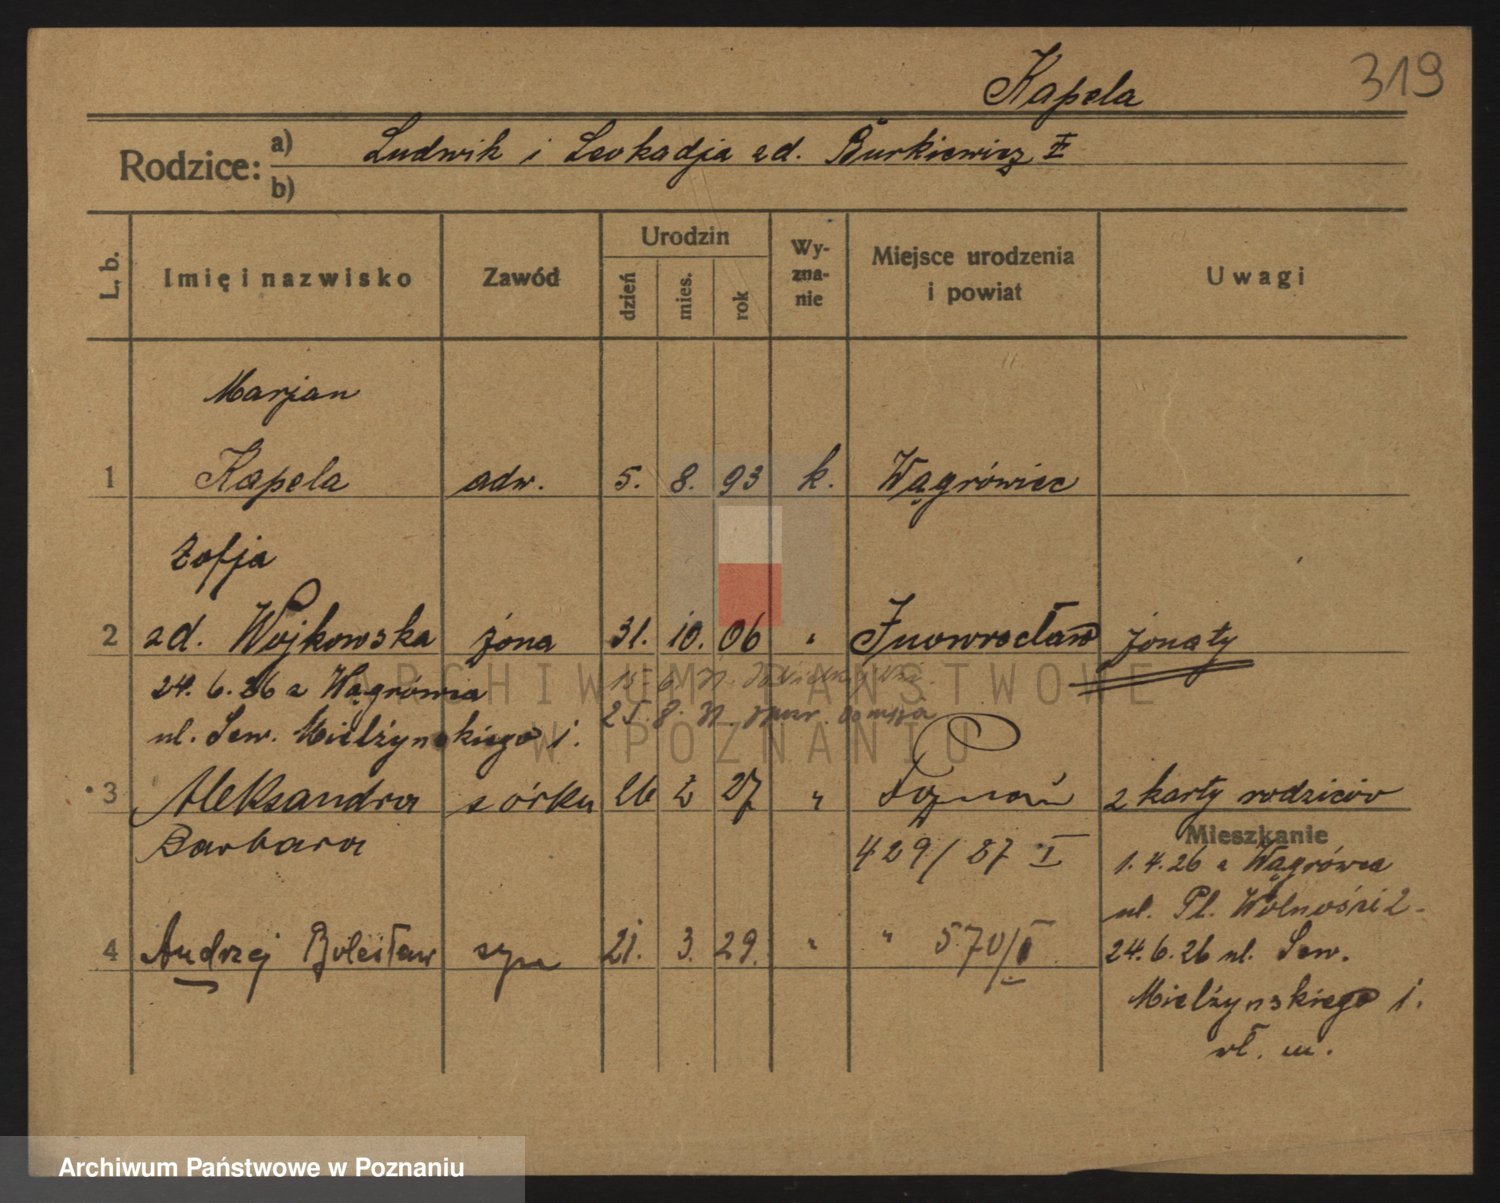 Kapela 319
Rodzice: a) Ludwik i Leokadja zd. Burkiewicz
b)
L. b. Imię i nazwisko Zawód Urodzin dzień mies. rok Wy-zna-nie Miejsce urodzenia i powiat Uwagi
Marjan
1 Kapela adw. 5. 8. 93 k. Wągrówiec
Zofja
2 zd. Wojkowska żona 31. 10. 06 " Inowrocław żonaty
24. 6. 26 z Wągrówca
ul. Sew. Mielżynskiego 1.
3 Aleksandra córka 26 2 27 " Poznań 2 karty rodziców
Barbara 429/87 I
Mieszkanie
1. 4. 26 z Wągrówca
ul. Pl. Wolności 2.
4 Andrzej Bolesław syn 21. 3. 29. " " 570/I
24. 6. 26 ul. Sew.
Mielżynskiego 1.
wł. m.
ARCHIWUM PAŃSTWOWE
W POZNANIU
Archiwum Państwowe w Poznaniu